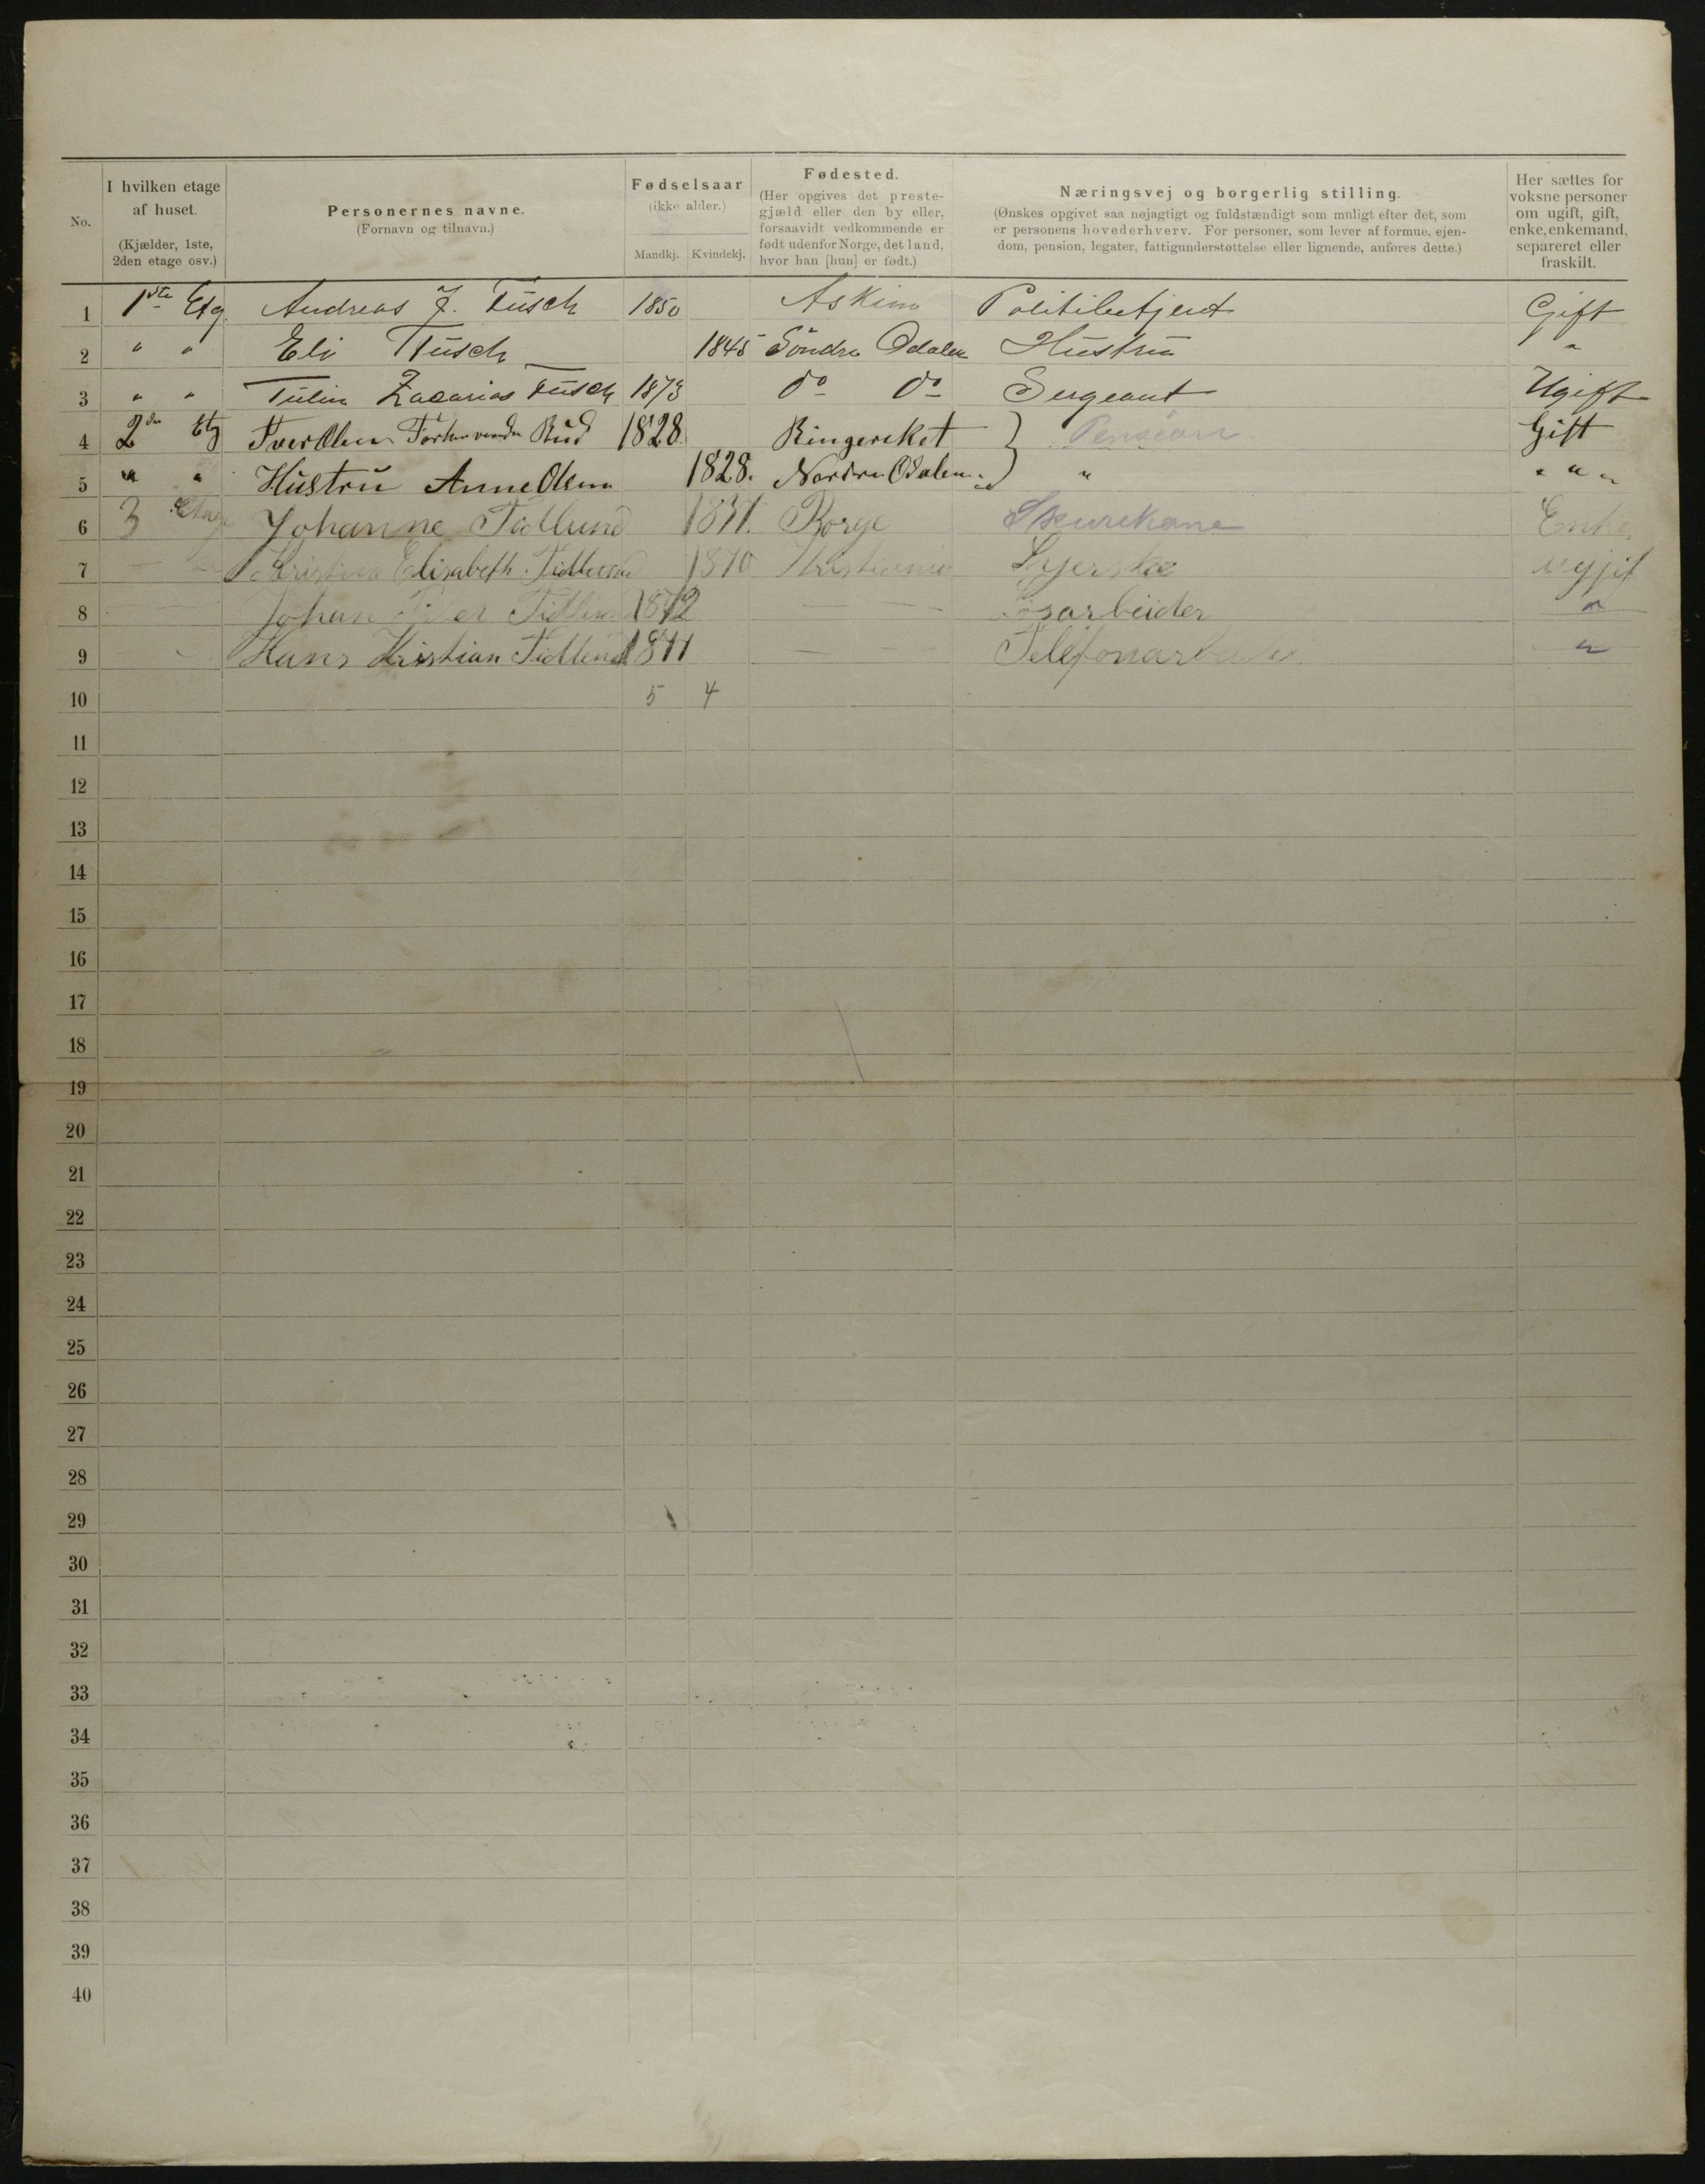 No.
I hvilken etage af huset.
(Kjælder, 1ste, 2den etage osv.)
Personernes navne.
(Fornavn og tilnavn.)
Fødselsaar
(ikke alder.)
Mandkj. Kvindekj.
Fødested.
(Her opgives det preste-
gjæld eller den by eller,
forsaavidt vedkommende er
født udenfor Norge, det land,
hvor han [hun] er født.)
Næringsvej og borgerlig stilling.
(Ønskes opgivet saa nøjagtigt og fuldstændigt som muligt efter det, som
er personens hovederhverv. For personer, som lever af formue, ejen-
dom, pension, legater, fattigunderstøttelse eller lignende, anføres dette.)
Her sættes for
voksne personer
om ugift, gift,
enke, enkemand,
separeret eller
fraskilt.
1 1ste Etg. Andreas J. Tusch 1850 Askim Politibetjent Gift
2 " " Eli Tusch 1845 Søndre Odalen Hustru "
3 " " Zacarias Tusch 1873 do do Sergeant Ugift
4 2den Etg Iver Olsen Rud 1828 Ringereket } Pension Gift
5 " " Hustru Anne Olsen 1828. Nordre Odalen } " " " "
6 3 Etage Johanne Tidlund Borge Skurekone Enke
7 Elisabeth Tidlund 1870 Kristiania Syerske ugjif
8 Johan Tidlund 1872 "
9 Hans Kristian Tidlund Telefonarbeider "
10 5 4
11
12
13
14
15
16
17
18
19
20
21
22
23
24
25
26
27
28
29
30
31
32
33
34
35
36
37
38
39
40